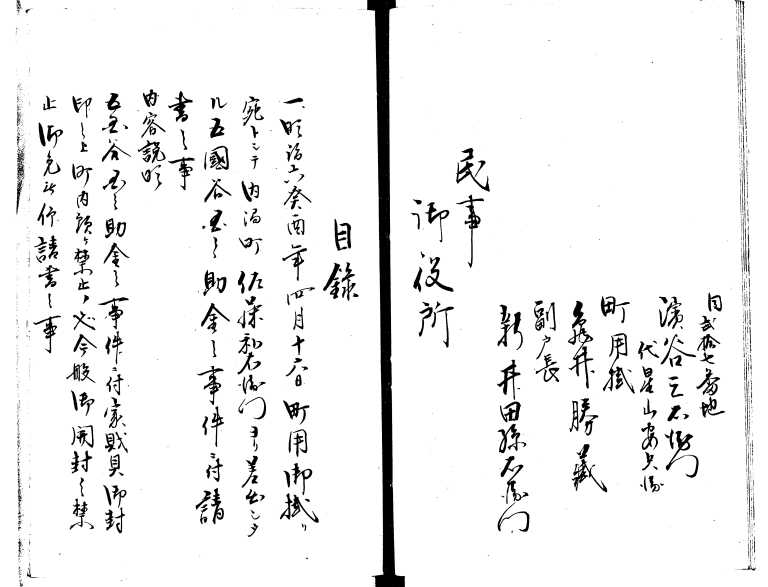 同弐拾七番地
濱谷三右衛門
代星山安兵衛
町用掛
亀井勝蔵
副戸長
新井田孫右衛門
民事
御役所
目錄
一、明治六癸酉年四月十六日町用御掛リ
宛トシテ内澗町佐藤和右衛門ヨリ差出シタ
ル五國谷 助金之事件ニ付請
書之事
内容説明
五 谷 助金之事件ニ付家賎具御封
印之上町内預ケ禁止ノ 今般御開封之禁
止御免被仰請書之事